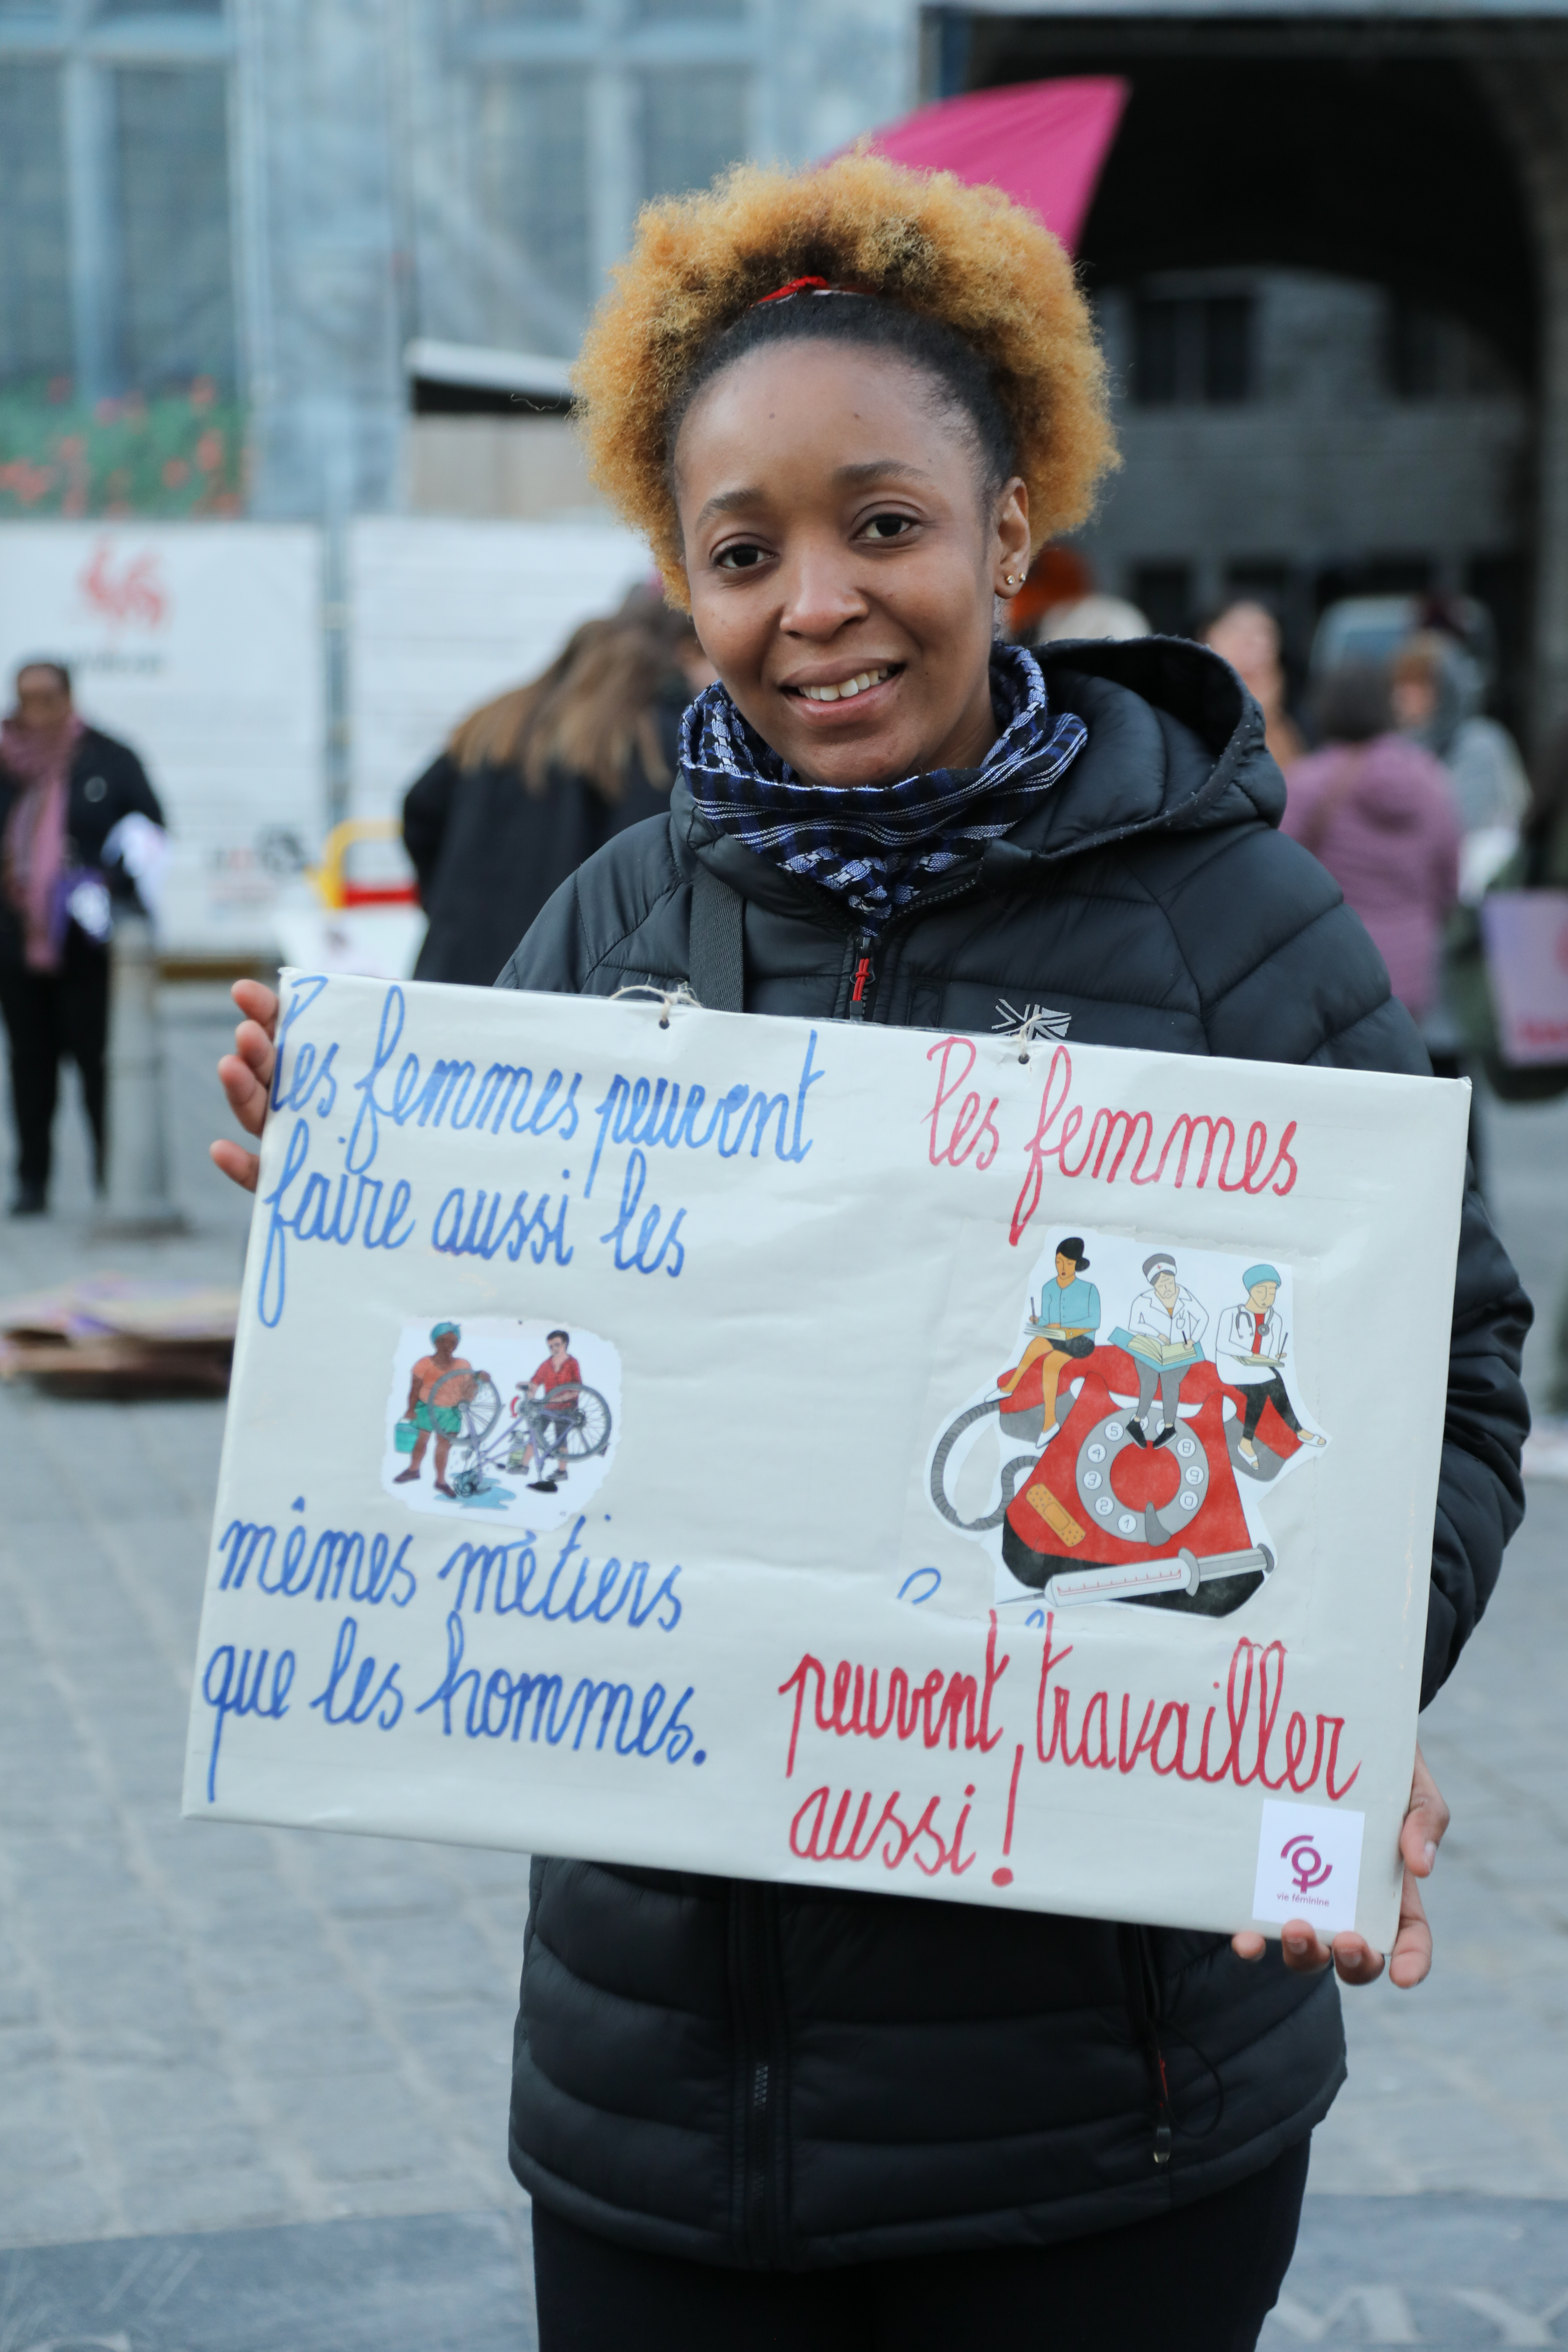 les femmes peuvent
faire aussi les
mêmes métiers
que les hommes.
les femmes
5
4
3
2
1
8
9
0
peuvent travailler
aussi !
vie féminine